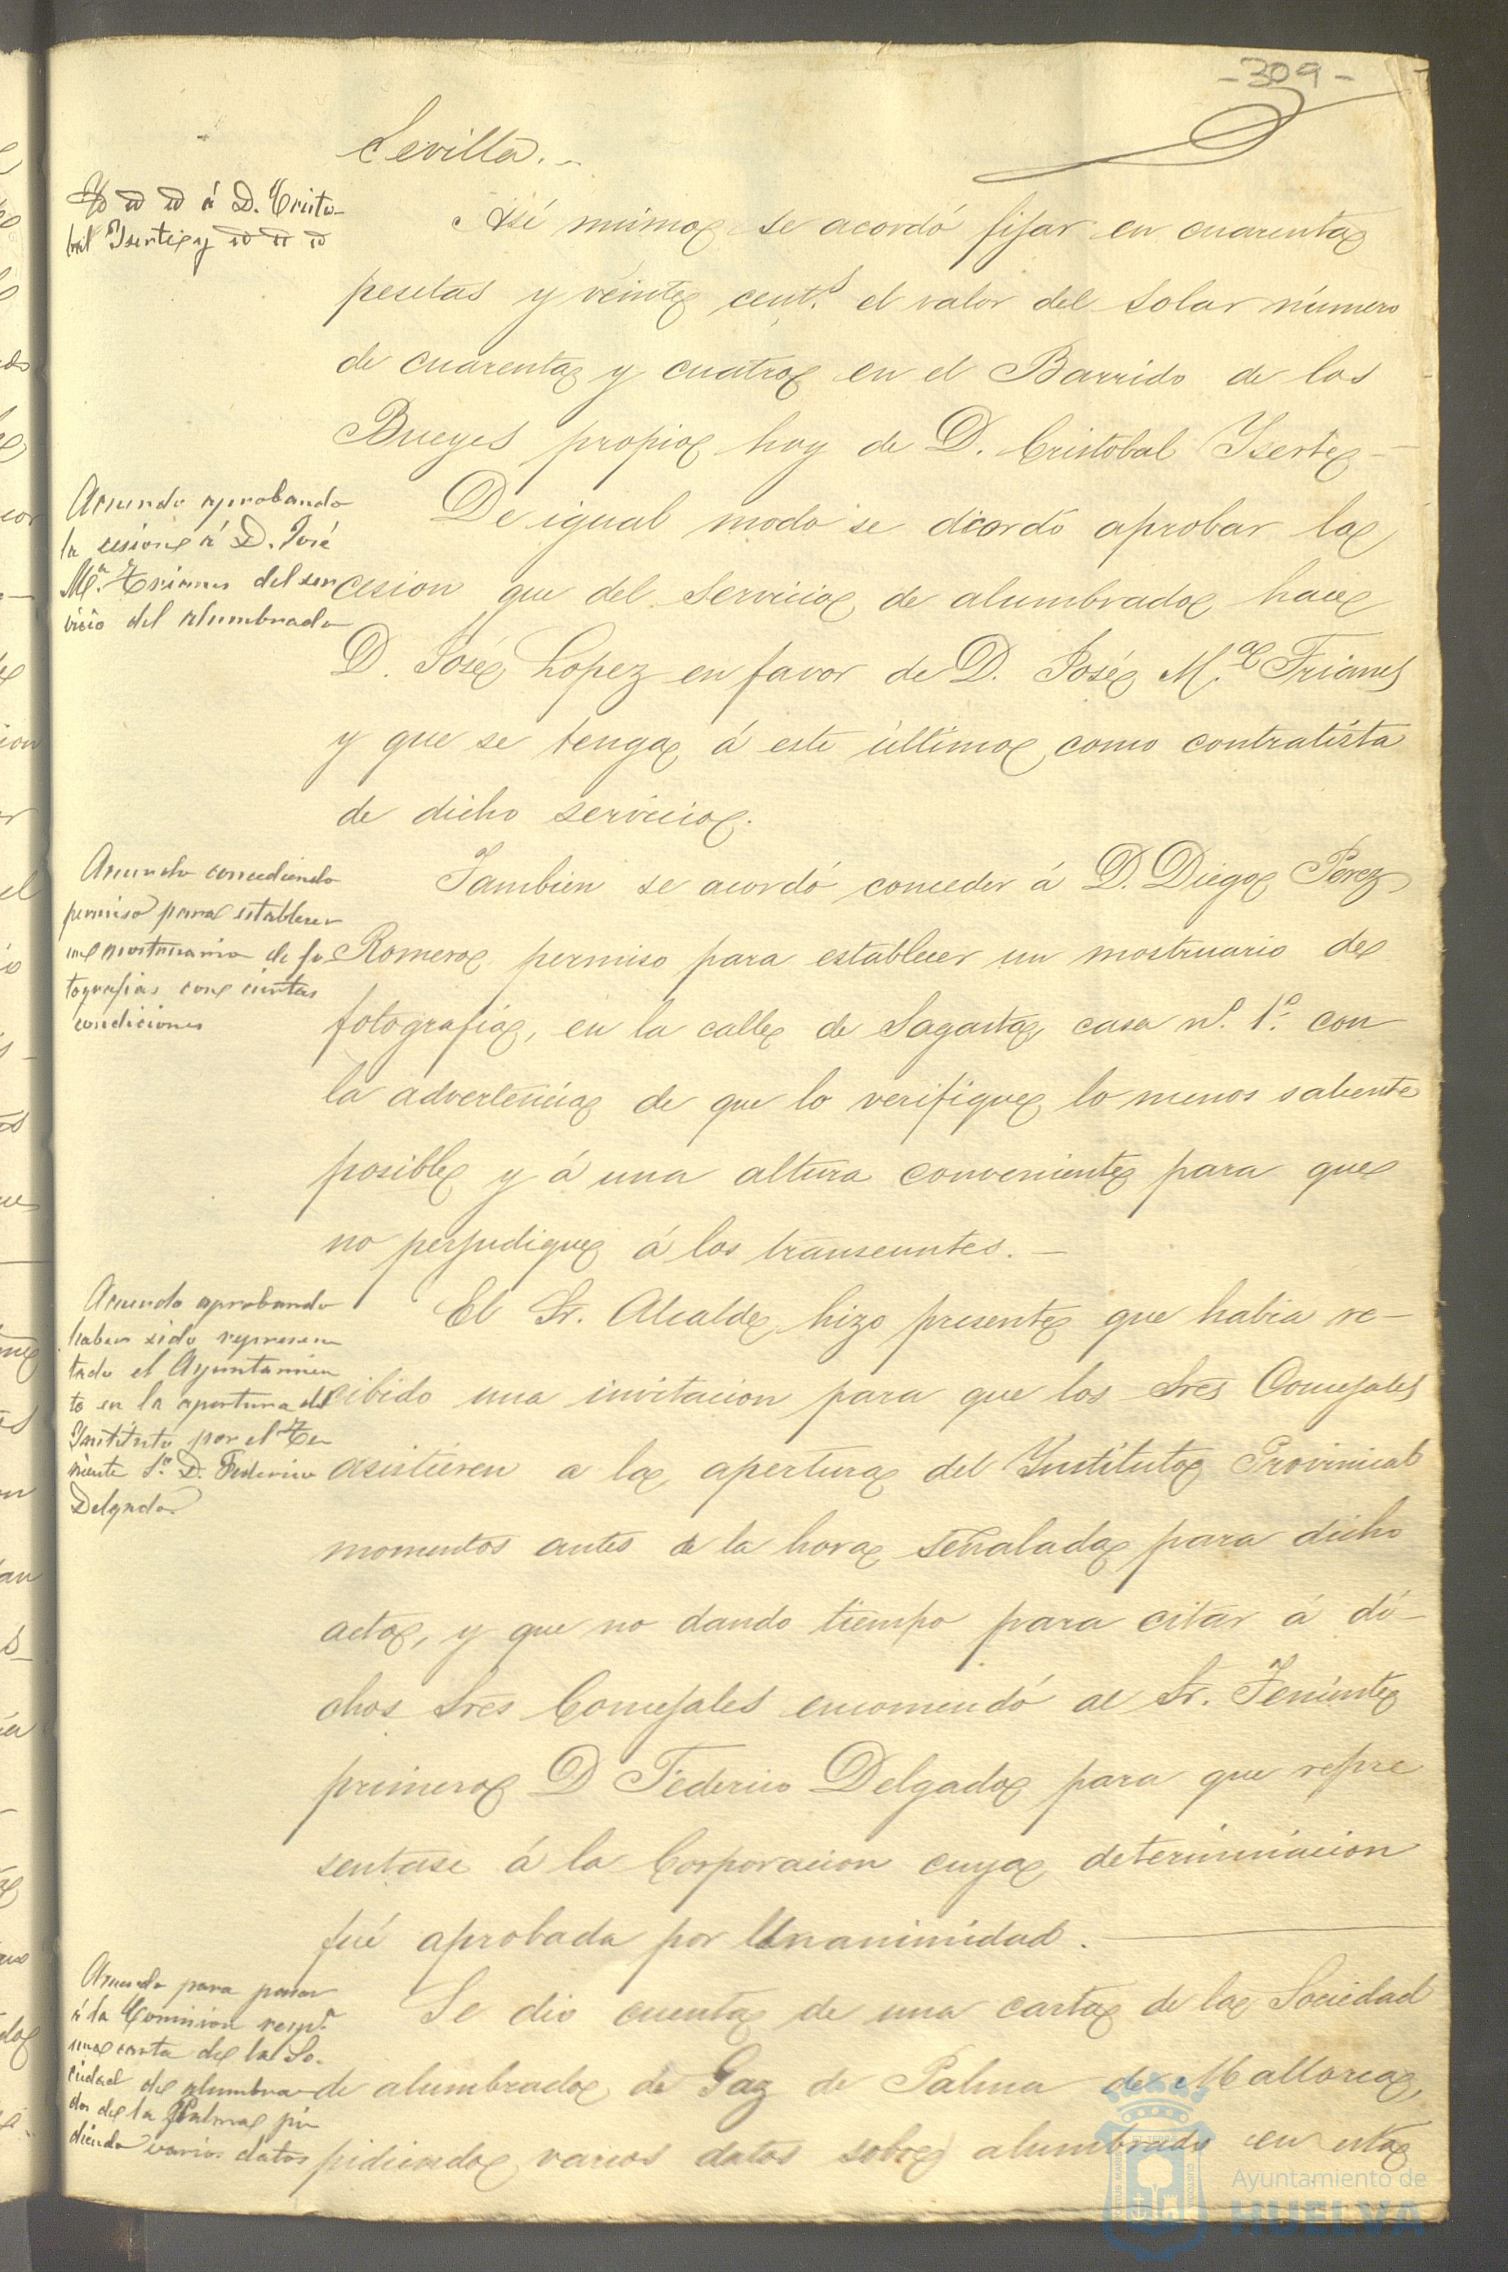 -309-
Sevilla.
Yd id id á D. Cristo-
bal Iserte y id id id
Asi mismo se acordó fijar en cuarenta
pesetas y veinte cent.s el valor del solar número
de cuarenta y cuatro en el Barrido de los
Bueyes propio hoy de D. Cristobal Yserte
Acuerdo aprobando
la cesion á D. José
M.a Trianes del ser
vicio del alumbrado
De igual modo se acordó aprobar la
cesion que del servicio de alumbrado hace
D. José Lopez en favor de D. José M.a Trianes
y que se tenga á este último como contratista
de dicho servicio.
Acuerdo concediendo
permiso para establecer
un mostruario de fo
tografias con ciertas
condiciones
Tambien se acordó conceder á D. Diego Perez
Romero permiso para establecer un mostruario de
fotografia, en la calle de Sagasta casa n.o 1.o con
la advertencia de que lo verifique lo menos saliente
posible y á una altura conveniente para que
no perjudique á los transeuntes.
Acuerdo aprobando
haber sido represen
tado el Ayuntamien
to en la apertura del
Instituto por el Te
niente 1.o D. Federico
Delgado
El Sr. Alcalde hizo presente que habia re-
cibido una invitacion para que los Sres Concejales
asistieren a la apertura del Instituto Provincial
momentos antes de la hora señalada para dicho
acto, y que no dando tiempo para citar á di-
chos Sres Concejales encomendó al Sr. Teniente
primero D Federico Delgado para que repre
sentase á la Corporacion cuya determinacion
fué aprobada por Unanimidad.
Acuerdo para pasar
á la Comision resp.a
una carta de la So-
ciedad de alumbra-
do de la Palma pi
diendo varios datos
Se dio cuenta de una carta de la Sociedad
de alumbrado de Gaz de Palma de Mallorca,
pidiendo varios datos sobre alumbrado en esta
Ayuntamiento de
HUELVA